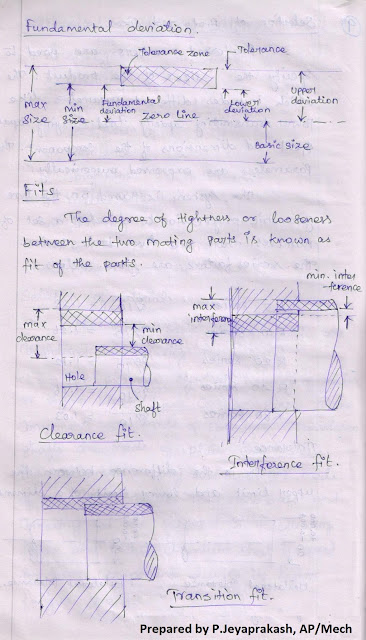 Fundamental deviation.
Tolerance zone
Tolerance
max size
min size
Fundamental deviation
Zero Line
Lower deviation
Upper deviation
Basic size
Fits
The degree of tightness or looseness
between the two mating parts is known as
fit of the parts.
max clearance
min clearance
Hole
Shaft
Clearance fit.
max interference
min. interference
Interference fit.
Transition fit.
Prepared by P.Jeyaprakash, AP/Mech